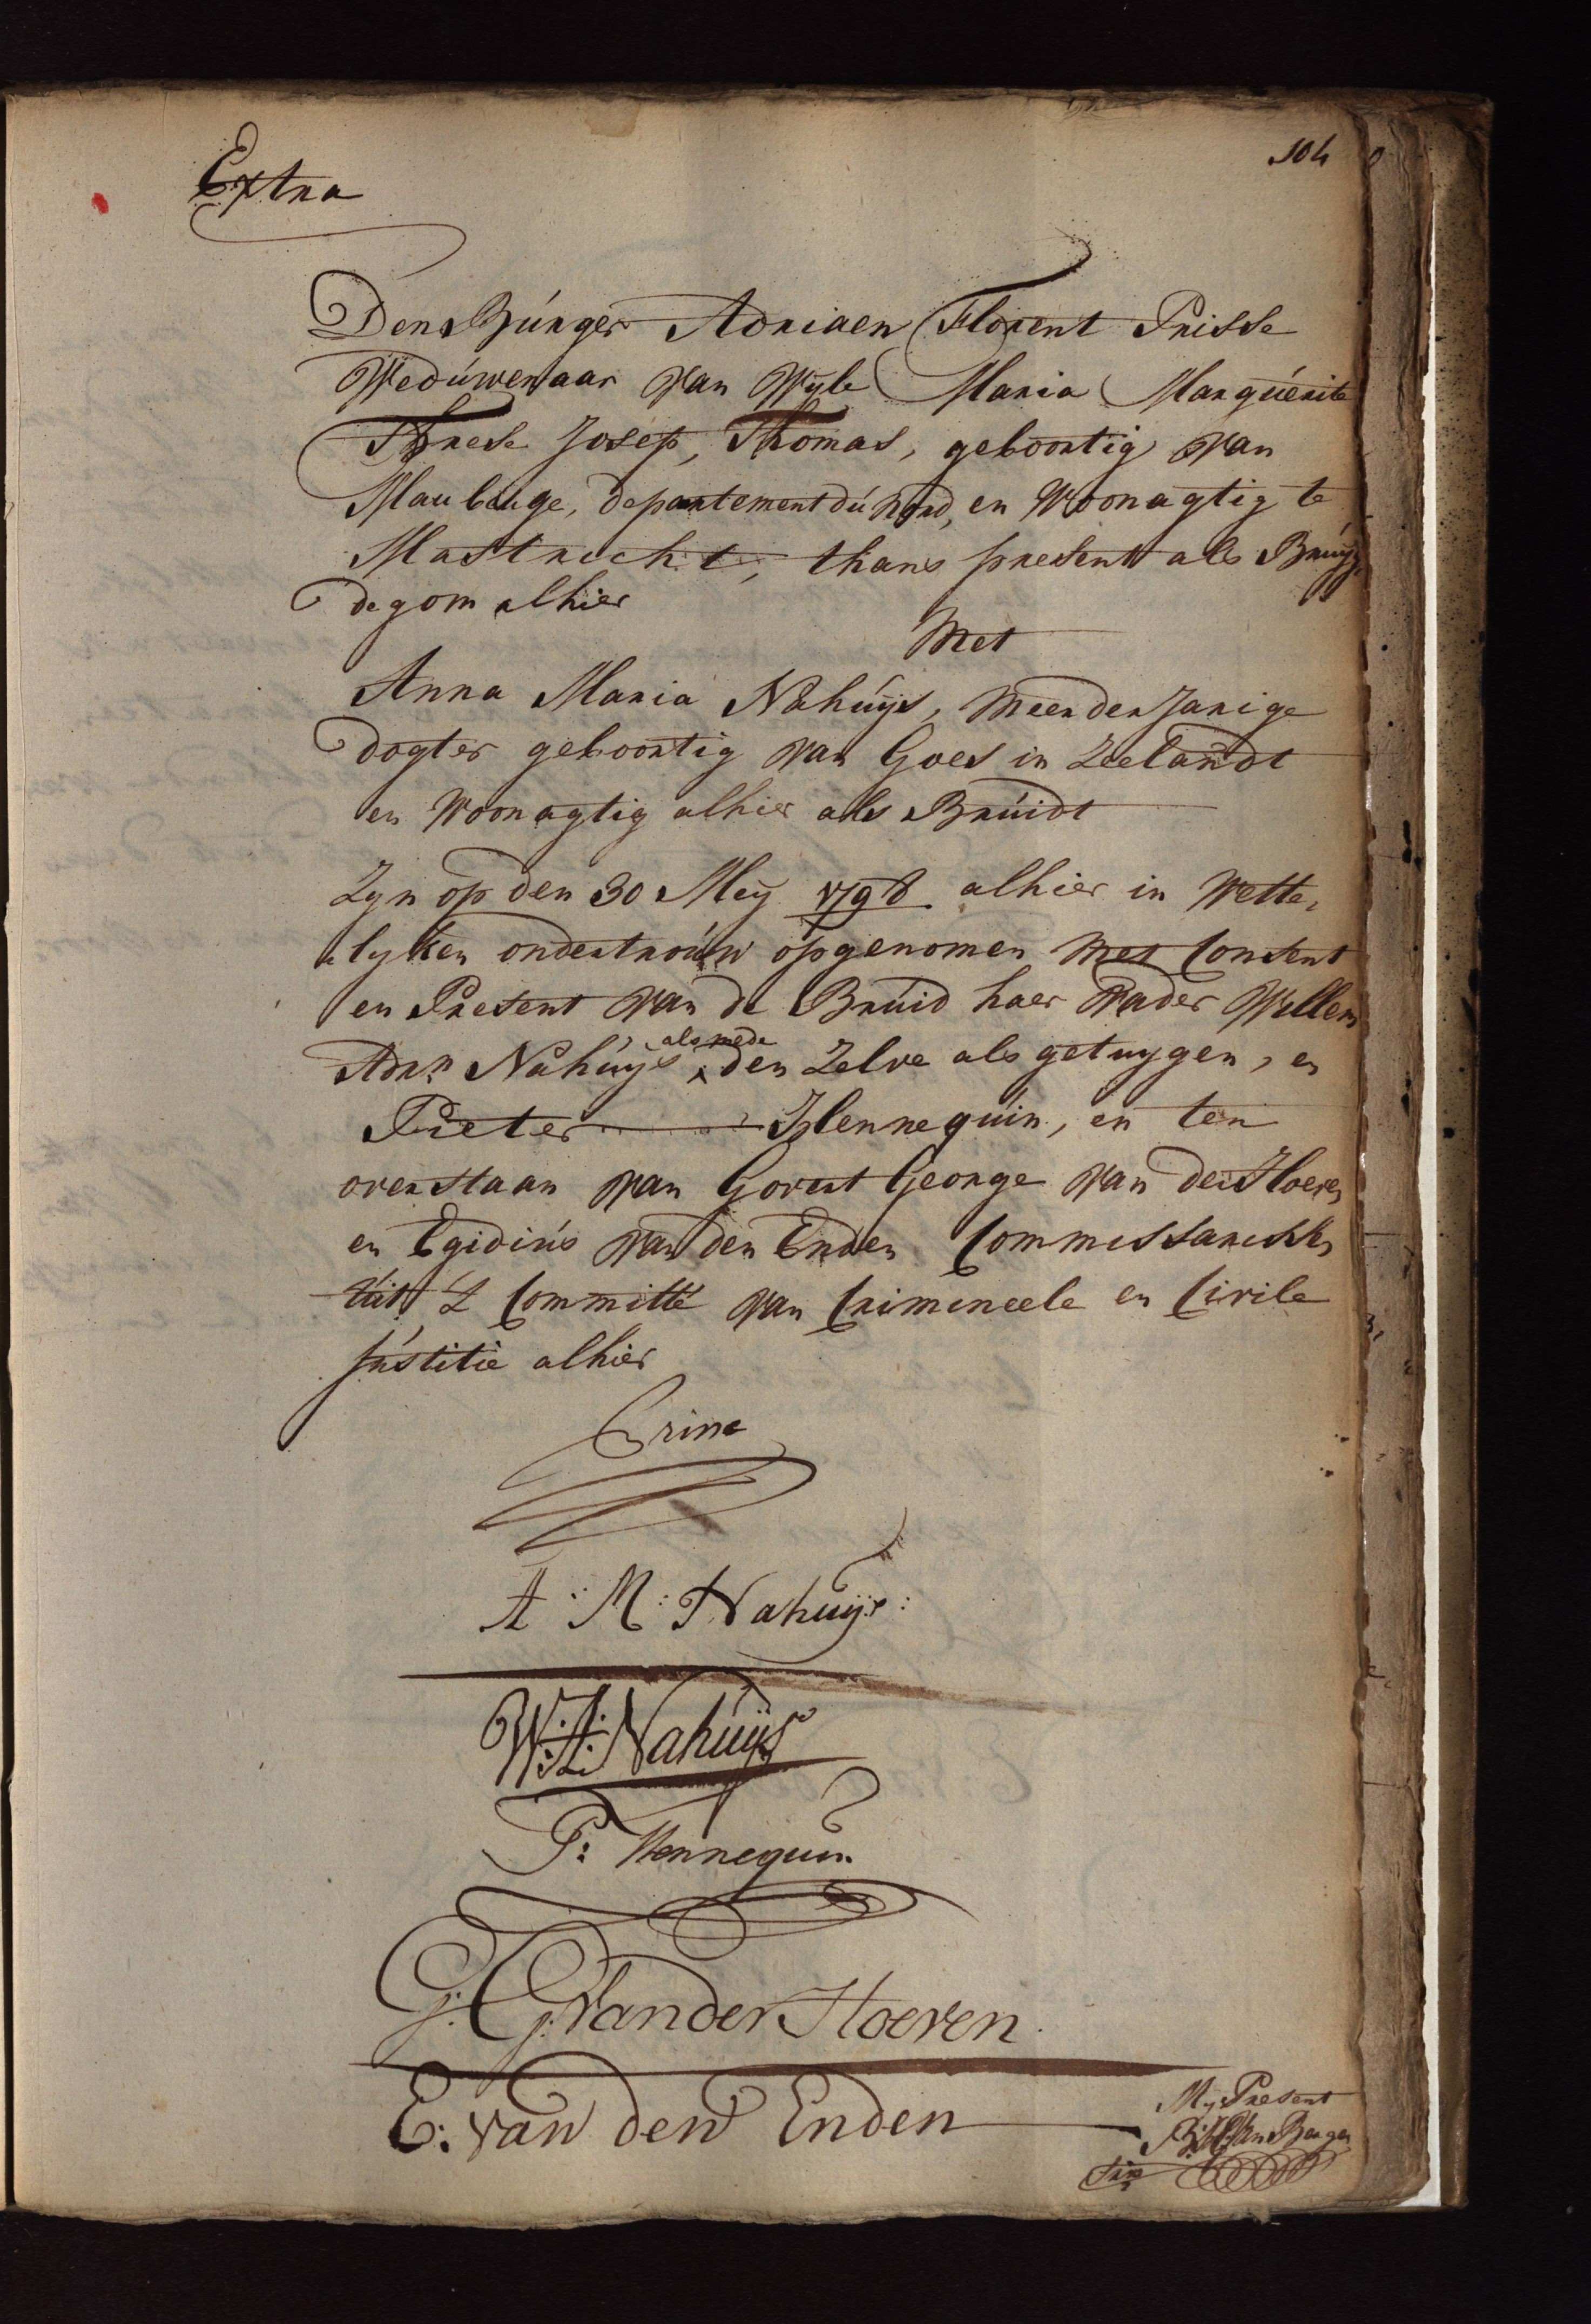 104
Extra
Den Burger Adriaen Florent Prisse
Weduwenaar van Wyle Maria Marguerite
Threse Josep, Thomas, geboortig van
Maubeuge, departement du Nord, en Woonagtig te
Mastricht, thans present als Bruy,
degom alhier
Met
Anna Maria Nahuijs, Meerderjarige
dogter geboortig van Goes in Zeelandt
en Woonagtig alhier als Bruidt
Zyn op den 30 Meij 1798 alhier in Wette,
lyken ondertrouw opgenomen met Consent
en Present van de Bruid haer Vader Willem
Adrn Nahuijs alsmede den Zelve als getuygen, en
Pieter Hennequin, en ten
overstaan van Govert George van der Hoeven
en Egidius van den Enden Commissarissen
uit 't Committé van Crimineele en Civile
Justitie alhier
A: M: Nahuijs:
W: A: Nahuijs
P: Hennequin
G: G: van der Hoeven.
E: van den Enden
My Present
van Bergen